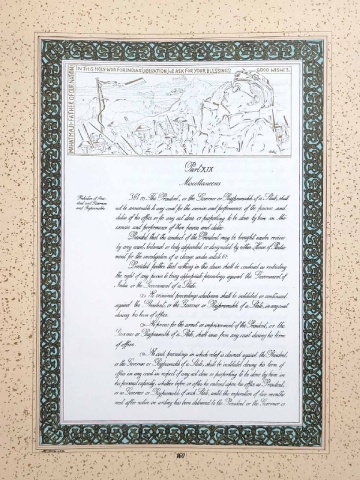 MAHATMAJI-FATHER OF OUR NATION
IN THIS HOLY WAR FOR INDIA'S LIBERATION, WE ASK FOR YOUR BLESSINGS & GOOD WISHES.
Part XIX
Miscellaneous
Protection of Pres-
ident and Governors
and Rajpramukhs
361. (1) The President, or the Governor or Rajpramukh of a State, shall
not be answerable to any court for the exercise and performance of the powers and
duties of his office or for any act done or purporting to be done by him in the
exercise and performance of those powers and duties:
Provided that the conduct of the President may be brought under review
by any court, tribunal or body appointed or designated by either House of Parlia-
ment for the investigation of a charge under article 61:
Provided further that nothing in this clause shall be construed as restricting
the right of any person to bring appropriate proceedings against the Government of
India or the Government of a State.
(2) No criminal proceedings whatsoever shall be instituted or continued
against the President, or the Governor or Rajpramukh of a State, in any court
during his term of office.
(3) No process for the arrest or imprisonment of the President, or the
Governor or Rajpramukh of a State, shall issue from any court during his term
of office.
(4) No civil proceedings in which relief is claimed against the President,
or the Governor or Rajpramukh of a State, shall be instituted during his term of
office in any court in respect of any act done or purporting to be done by him in
his personal capacity, whether before or after he entered upon his office as President,
or as Governor or Rajpramukh of such State, until the expiration of two months
next after notice in writing has been delivered to the President or the Governor or
160